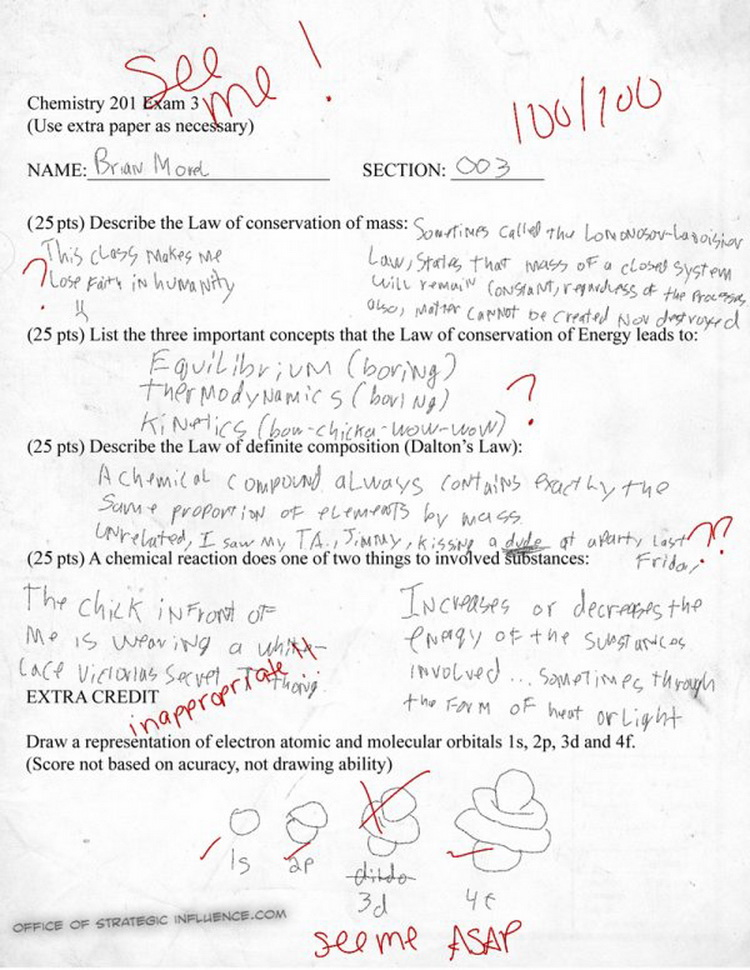 See
me!
100/100
Chemistry 201 Exam 3
(Use extra paper as necessary)
NAME: Brian Morel
SECTION: 003
(25 pts) Describe the Law of conservation of mass: Sometimes called the Lomonosov-Lavoisier
Law, States that mass of a closed system
will remain constant, regardless of the processes
also, matter cannot be created nor destroyed
? This class makes me
lose faith in humanity
(25 pts) List the three important concepts that the Law of conservation of Energy leads to:
Equilibrium (boring)
thermodynamics (boring)
Kinetics (bow-chicka-wow-wow) ?
(25 pts) Describe the Law of definite composition (Dalton's Law):
A chemical compound always contains exactly the
same proportion of elements by mass.
unrelated, I saw my T.A., Jimmy, kissing a dude at a party last
Friday ??
(25 pts) A chemical reaction does one of two things to involved substances:
The chick in front of
me is wearing a white
lace Victorias Secret thong.
inappropriate!!
Increases or decreases the
energy of the substances
involved... sometimes through
the form of heat or light
EXTRA CREDIT
Draw a representation of electron atomic and molecular orbitals 1s, 2p, 3d and 4f.
(Score not based on acuracy, not drawing ability)
1s 2p dildo 4f
3d
OFFICE OF STRATEGIC INFLUENCE.COM
see me ASAP